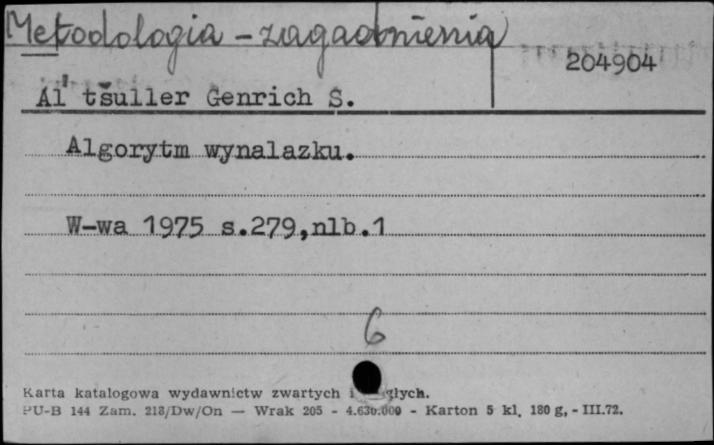 Metodologia - zagadnienia
204904
Al'tšuller Genrich S.
Algorytm wynalazku.
W-wa 1975 s.279,nlb.1
6
Karta katalogowa wydawnictw zwartych i
PU-B 144 Zam. 218/Dw/On — Wrak 205 - 4.630.000 - Karton 5 kl. 180 g, - III.72.